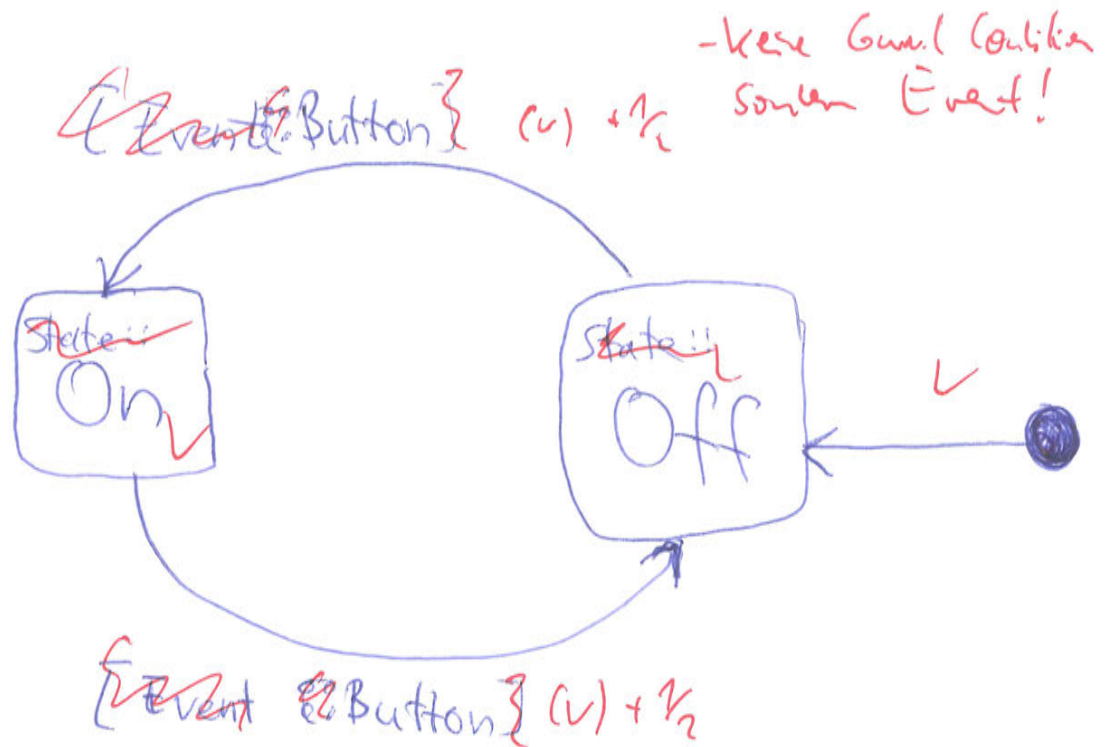 - keine Guard Condition
sondern Event!
[Event::Button] (v) + 1/2
State::
On
State::
Off
[Event::Button] (v) + 1/2